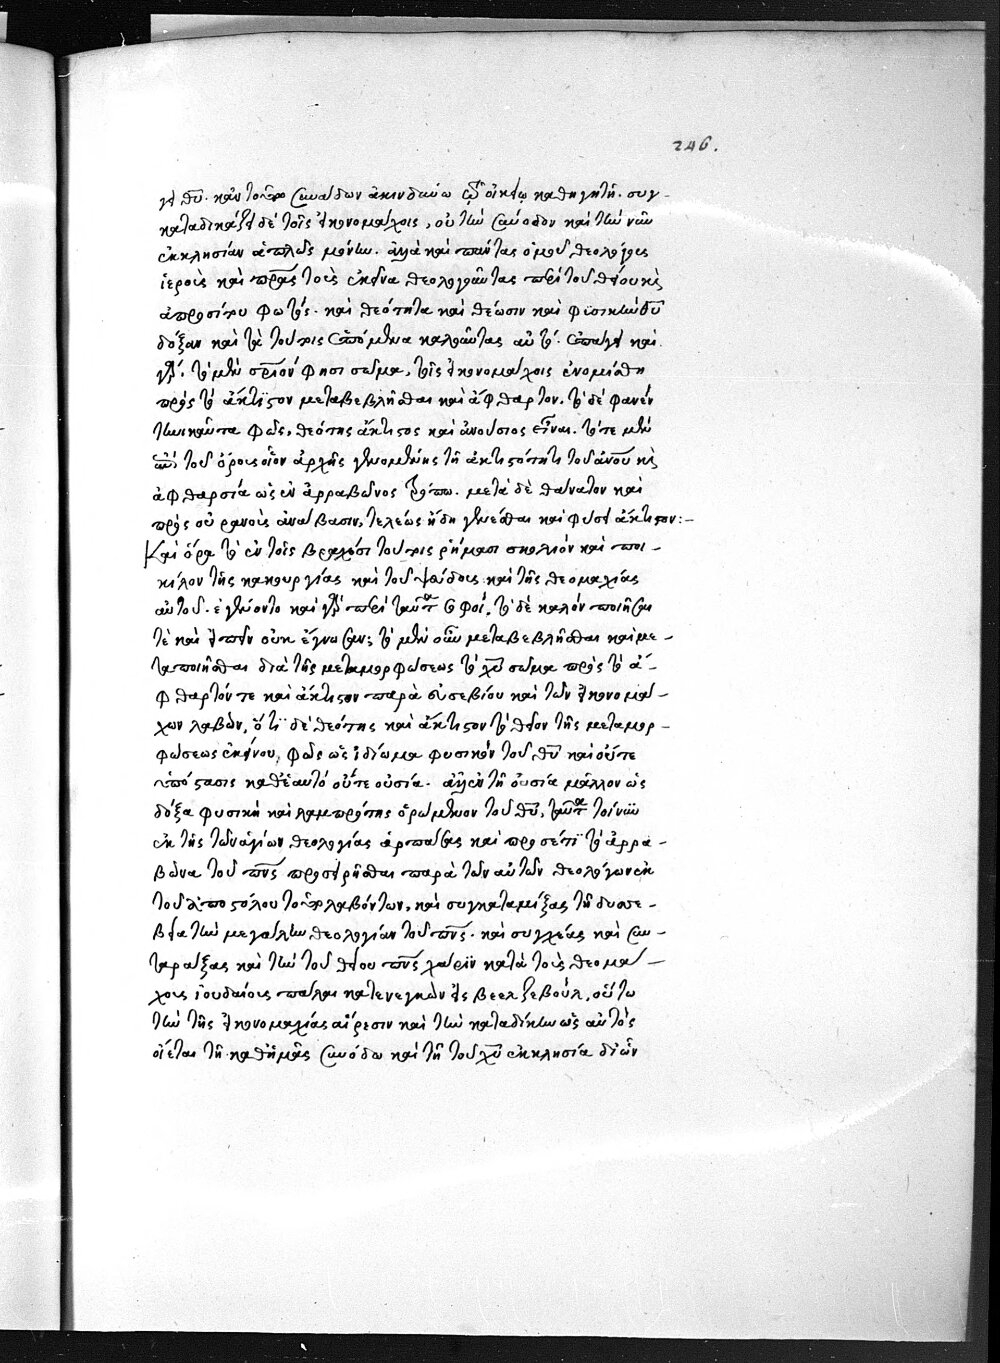 246.
θυ. κἀν τούτω συναΐδων ἀκινδύνω τῶ οἰκείω καθηγητῆ. συγ-
καταδικάζει δὲ τοῖς εἰκονομάχοις, οὐ τὴν σύνοδον καὶ τὴν νῦν
ἐκκλησίαν ἁπλῶς μόνην. ἀλλὰ καὶ πάντας ὁμοῦ θεολόγους
ἱεροὺς καὶ πρὸς τοὺς ἐκεῖνα θεολογοῦντας περὶ τοῦ θείου κς
ἀπροσίτου φωτός. καὶ θεότητα καὶ θέωσιν καὶ φυσικὴν θυ
δόξαν καὶ τὰ τούτοις ἑπόμενα καλοῦντας αὐτό. ἐπάγει καὶ
γὰρ. τὸ μὲν φησι σῶμα, τοῖς εἰκονομάχοις ἐνομίσθη
πρὸς τὸ ἄκτιστον μεταβεβλῆσθαι καὶ ἄφθαρτον. τὸ δὲ φανὲν
τηνικαῦτα φῶς, θεότης ἄκτιστος καὶ ἀνούσιος εἶναι. τότε μὲν
τοῦ ὄρους οἷον ἀρχῆς γενομένης τῆ ἀκτιστότητι τοῦ ἀνου κς
ἀφθαρσία ὡς ἐν ἀρραβῶνος τρόπω. μετὰ δὲ θάνατον καὶ
πρὸς οὐρανοὺς ἀνάβασιν, τελέως ἤδη γενέσθαι καὶ φύσει ἄκτιστον:-
Καὶ ὅρα τὸ ἐν τοῖς βραχέσι τούτοις ῥήμασι σκολιὸν καὶ ποι-
κίλον τῆς κακουργίας καὶ τοῦ ψεύδους καὶ τῆς θεομαχίας
αὐτοῦ. ἐγένοντο καὶ γὰρ περὶ ταῦτα σοφοὶ, τὸ δὲ καλὸν ποιῆσαι
τὲ καὶ εἰπεῖν οὐκ ἔγνωσαν: τὸ μὲν οὖν μεταβεβλῆσθαι καὶ με-
ταποιῆσθαι διὰ τῆς μεταμορφώσεως τὸ χυ σῶμα πρὸς τὸ ἄ-
φθαρτόν τε καὶ ἄκτιστον παρὰ εὐσεβίου καὶ τῶν εἰκονομά-
χων λαβὼν, ὅτι δὲ θεότης καὶ ἄκτιστον τὸ θεῖον τῆς μεταμορ-
φώσεως ἐκείνου, φῶς ὡς ἰδίωμα φυσικὸν τοῦ θυ καὶ οὔτε
ὑπόστασις καθ᾽ ἑαυτὸ οὔτε οὐσία. ἀλλ᾽ ἐν τῆ οὐσία μᾶλλον ὡς
δόξα φυσικὴ καὶ λαμπρότης ὁρώμενον τοῦ θυ, ταῦτα τοίνυν
ἐκ τῆς τῶν ἁγίων θεολογίας ἁρπάσας καὶ προσέτι τὸ ἀρρα-
βῶνα τοῦ πνς προσειρῆσθαι παρὰ τῶν αὐτῶν θεολόγων ἐκ
τοῦ ἀποστόλου τοῦτο λαβόντων, καὶ συγκαταμίξας τῆ δυσσε-
βεία τὴν μεγάλην θεολογίαν τοῦ πνς. καὶ συγχέας καὶ συν-
ταράξας καὶ τὴν τοῦ θείου πνς χάριν κατὰ τοὺς θεομά-
χους ἰουδαίους πάλαι κατενεγκὼν εἰς βεελζεβοὺλ, οὕτω
τὴν τῆς εἰκονομαχίας αἵρεσιν καὶ τὴν καταδίκην ὡς αὐτὸς
οἴεται τῆ καθ᾽ ἡμᾶς συνόδω καὶ τῆ τοῦ χυ ἐκκλησία δι᾽ ὧν